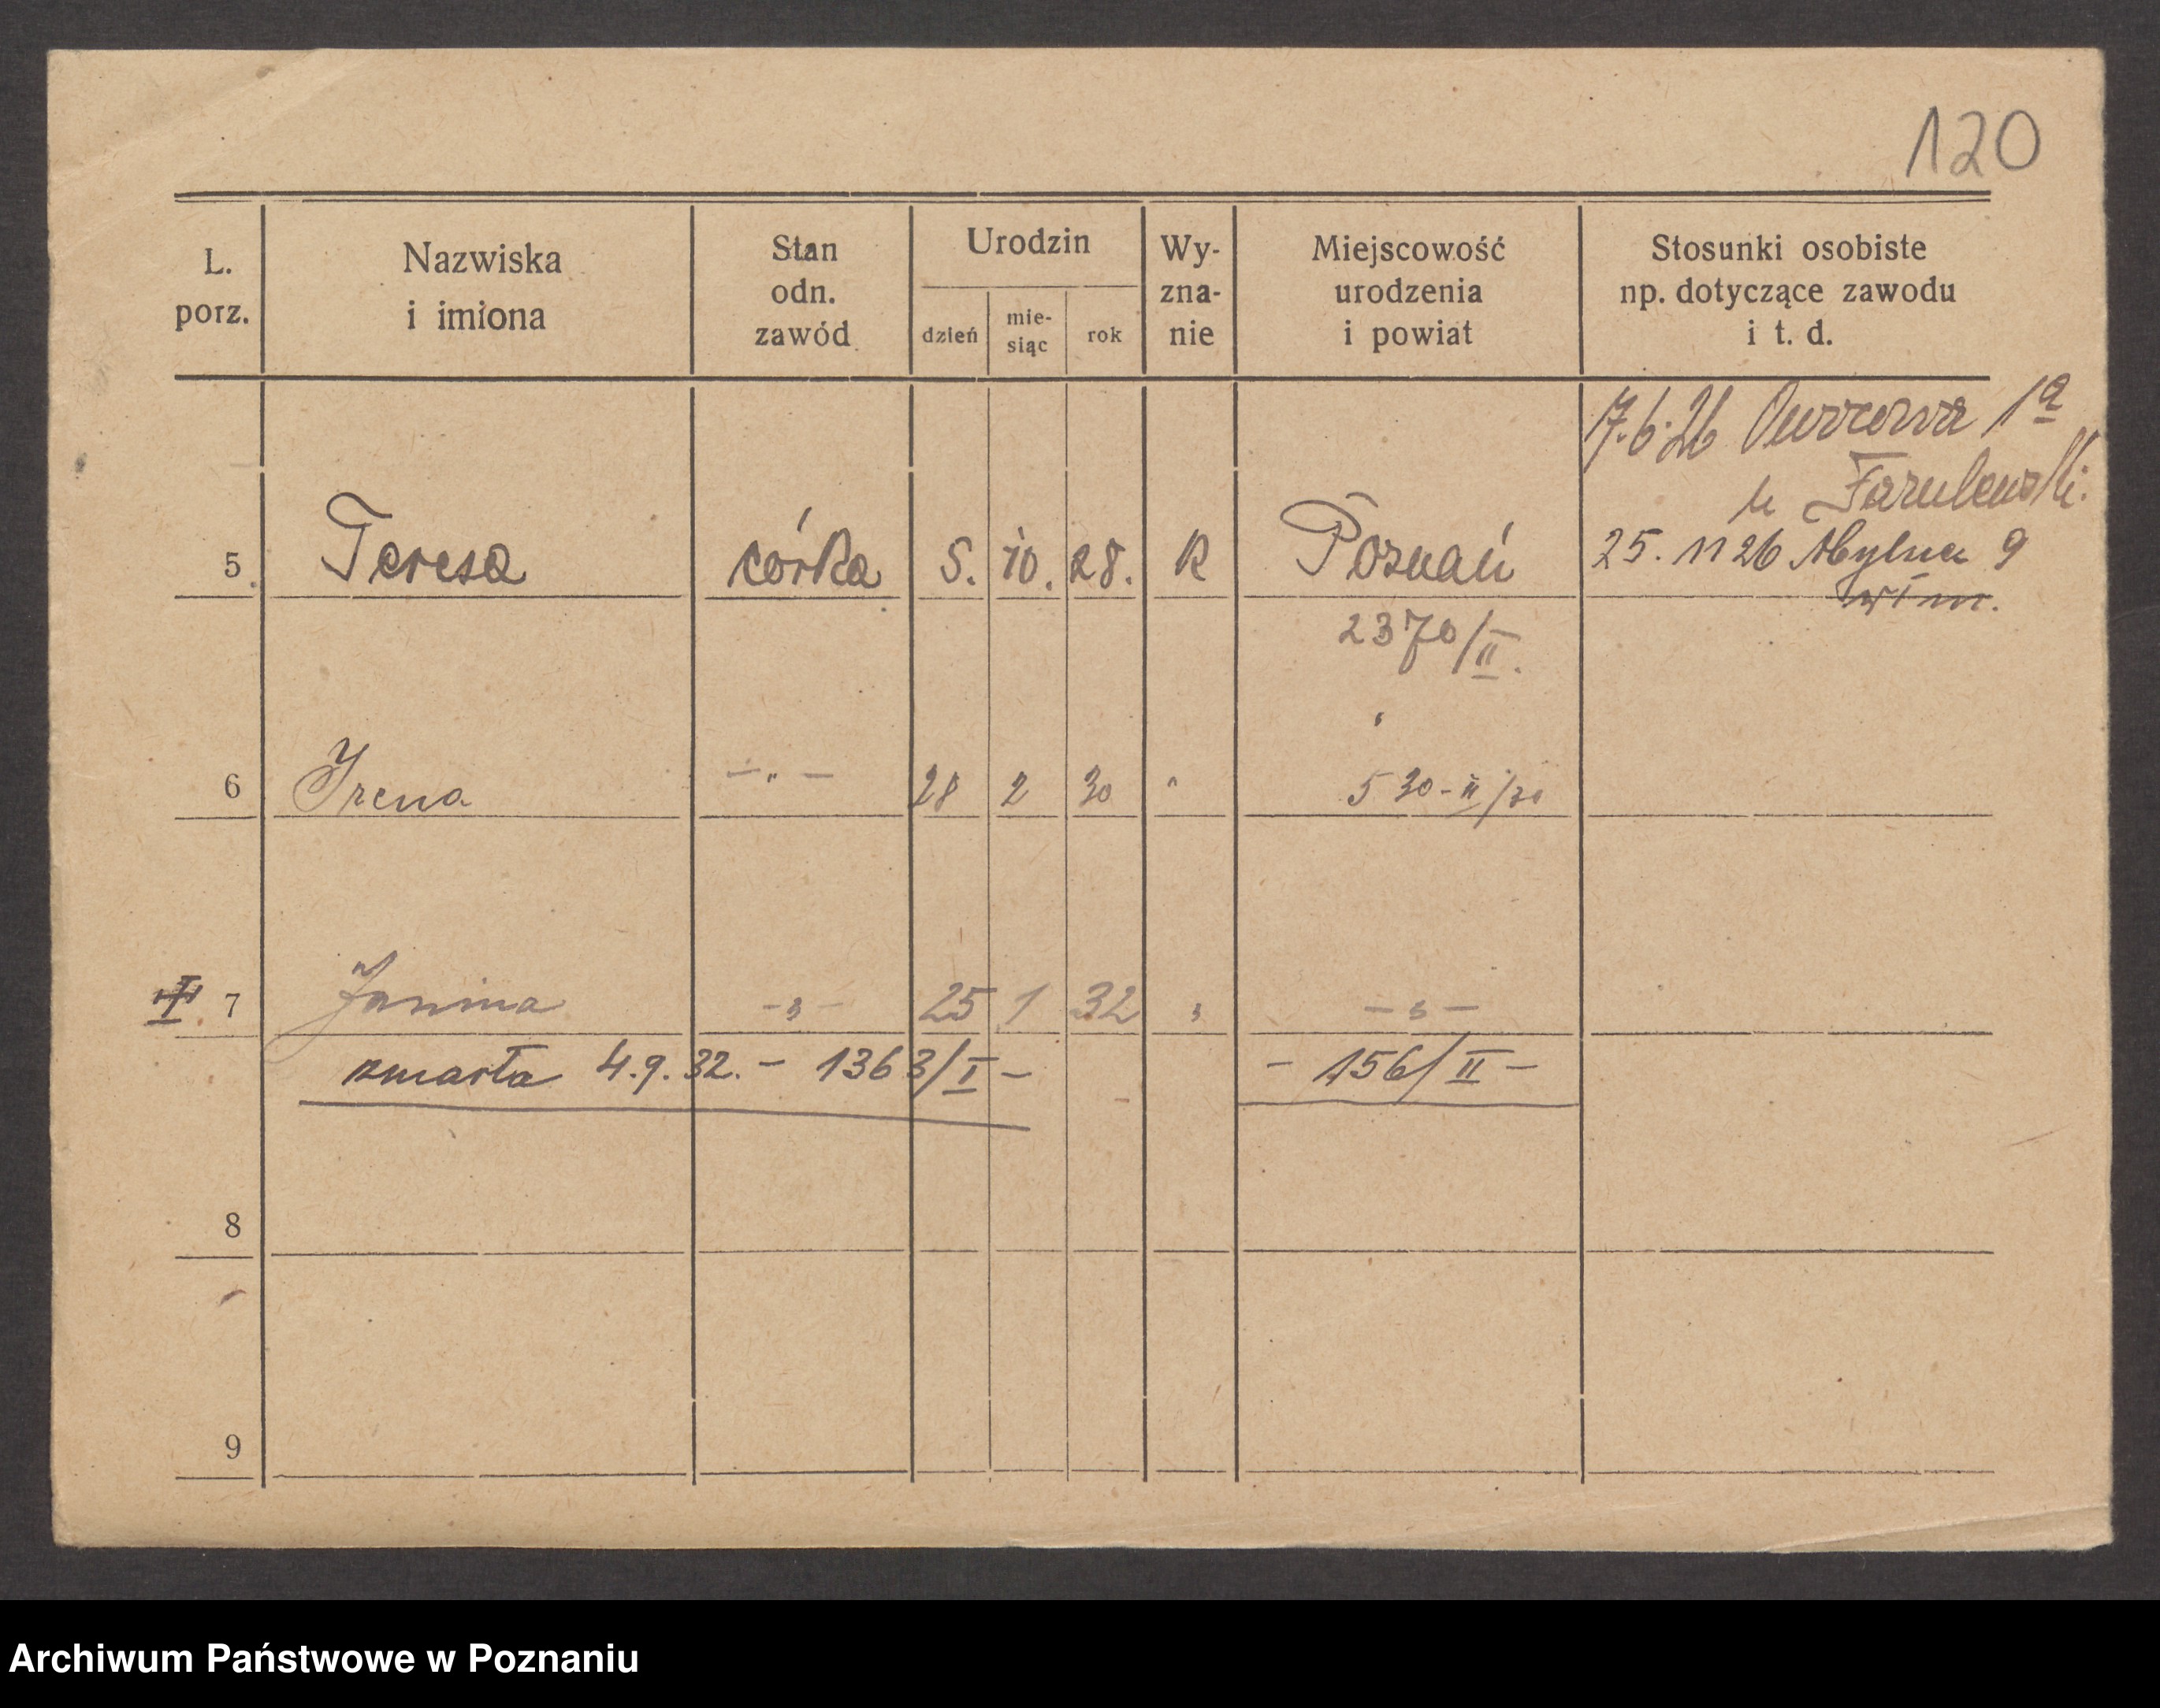 120
L. porz.
Nazwiska i imiona
Stan odn. zawód
Urodzin
dzień
mie-siąc
rok
Wy-zna-nie
Miejscowość urodzenia i powiat
Stosunki osobiste np. dotyczące zawodu i t. d.
17.6.26 1a
u
25. 11 26 Mylna 9
5. Teresa córka 5. 10. 28. R Poznań
2370/II.
6 Irena -"- 28 2 30 " 530-II/30
7 Janina -"- 25 1 32 " -"-
zmarła 4.9.32. - 1363/I -
- 156/II -
8
9
Archiwum Państwowe w Poznaniu